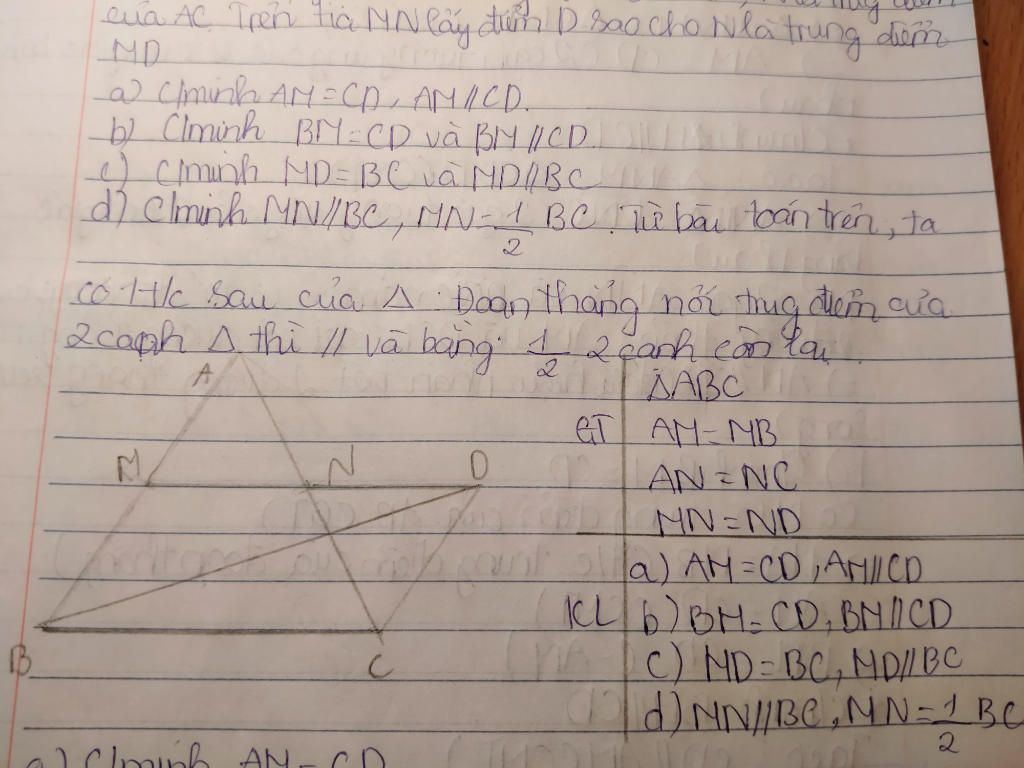 của AC. Trên tia MN lấy điểm D sao cho N là trung điểm
MD
a) C/minh AM = CD, AM // CD.
b) C/minh BM = CD và BM // CD
c) C/minh MD = BC và MD // BC
d) C/minh MN // BC, MN = 1/2 BC. Từ bài toán trên, ta
có T/c sau của Δ. Đoạn thẳng nối trug điểm của
2 cạnh Δ thì // và bằng 1/2 2 cạnh còn lại.
A
M N D
B C
ΔABC
GT AM = MB
AN = NC
MN = ND
a) AM = CD, AM // CD
KL b) BM = CD, BM // CD
c) MD = BC, MD // BC
d) MN // BC, MN = 1/2 BC
a) C/minh AM = CD